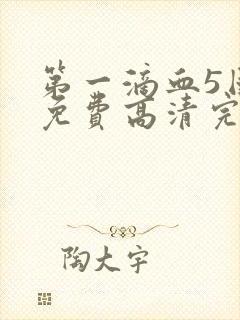 第一滴血5
免费高清完
陶大宇